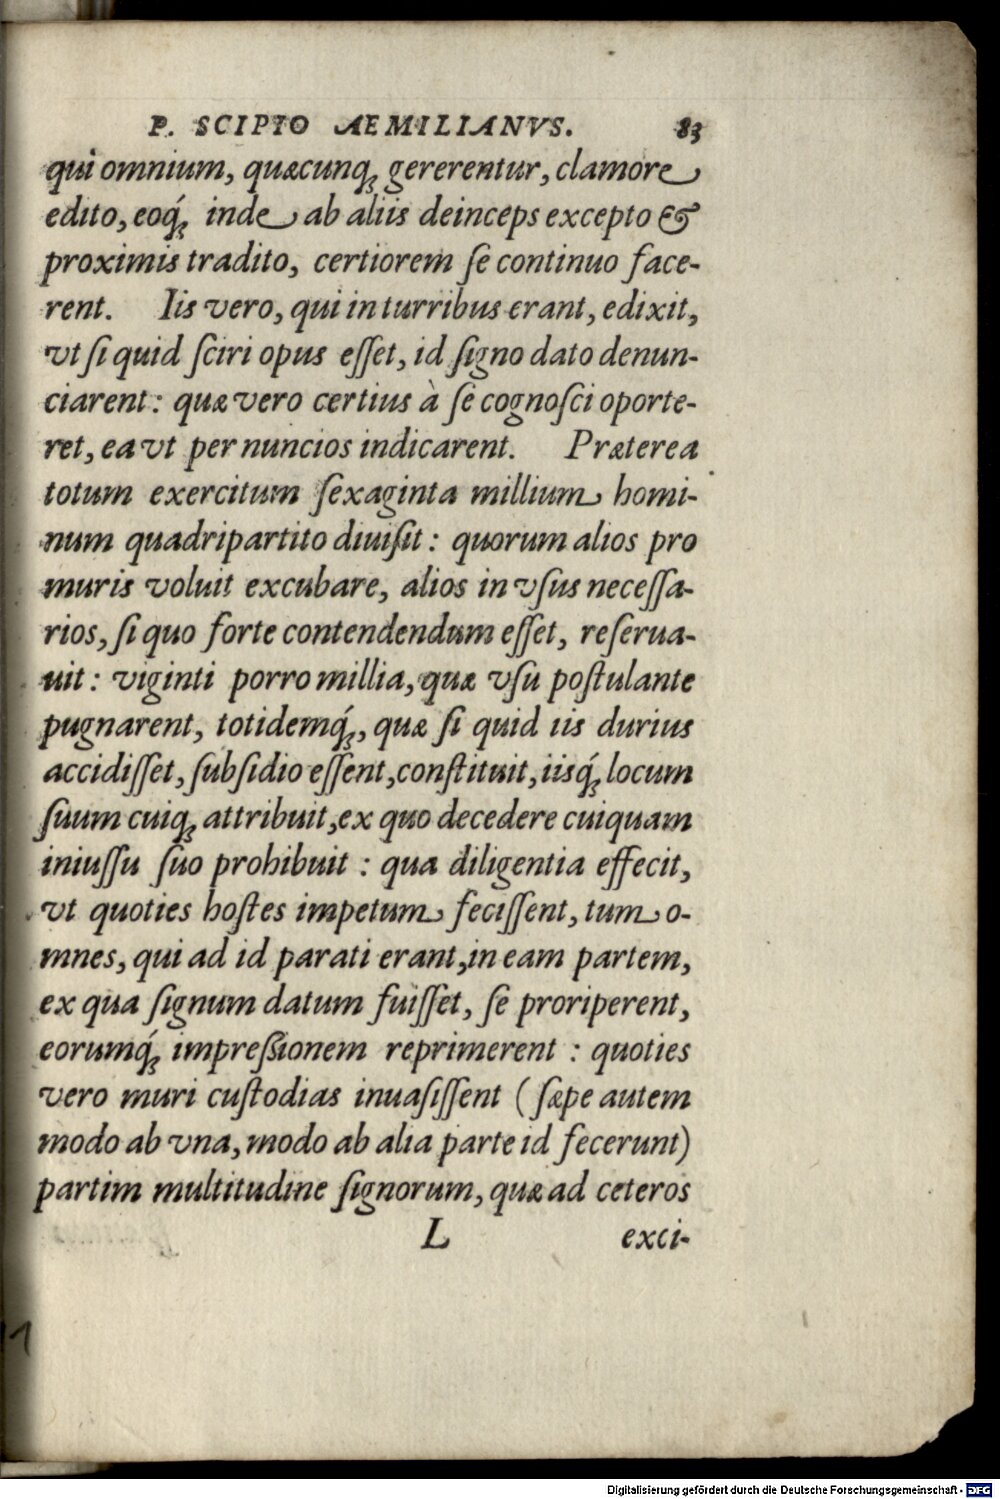 P. SCIPIO AEMILIANVS. 83
qui omnium, quæcunq; gererentur, clamore
edito, eoq́; inde ab aliis deinceps excepto &
proximis tradito, certiorem ſe continuo face-
rent. Iis vero, qui in turribus erant, edixit,
vt ſi quid ſciri opus eſſet, id ſigno dato denun-
ciarent: quæ vero certius à ſe cognoſci oporte-
ret, ea vt per nuncios indicarent. Præterea
totum exercitum ſexaginta millium homi-
num quadripartito diuiſit: quorum alios pro
muris voluit excubare, alios in vſus neceſſa-
rios, ſi quo forte contendendum eſſet, reſerua-
uit: viginti porro millia, quæ vſu poſtulante
pugnarent, totidemq́;, quæ ſi quid iis durius
accidiſſet, ſubſidio eſſent, conſtituit, iisq́; locum
ſuum cuiq; attribuit, ex quo decedere cuiquam
iniuſſu ſuo prohibuit: qua diligentia effecit,
vt quoties hoſtes impetum feciſſent, tum o-
mnes, qui ad id parati erant, in eam partem,
ex qua ſignum datum fuiſſet, ſe proriperent,
eorumq́; impreßionem reprimerent: quoties
vero muri cuſtodias inuaſiſſent (ſæpe autem
modo ab vna, modo ab alia parte id fecerunt)
partim multitudine ſignorum, quæ ad ceteros
L exci-
Digitalisierung gefördert durch die Deutsche Forschungsgemeinschaft - DFG